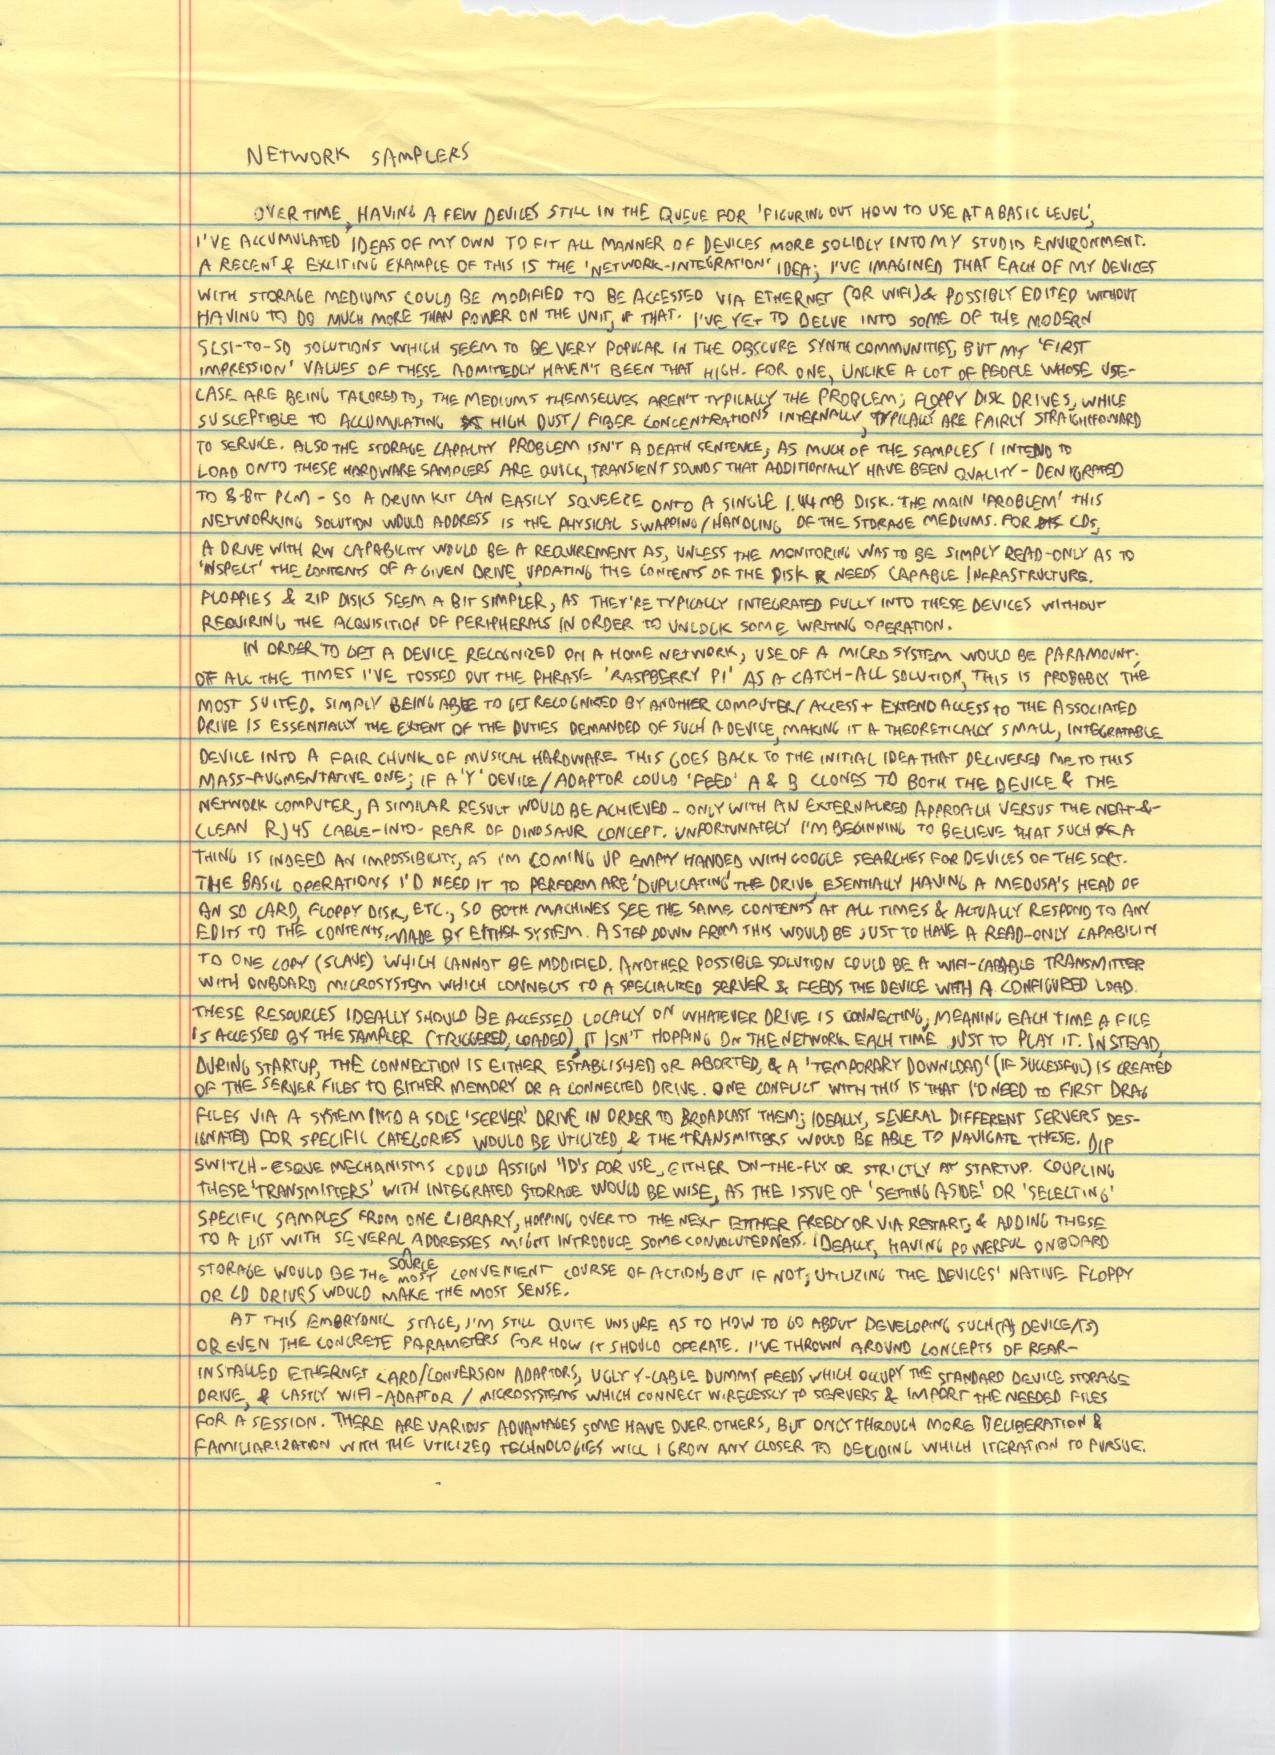 NETWORK SAMPLERS
OVER TIME, HAVING A FEW DEVICES STILL IN THE QUEUE FOR 'FIGURING OUT HOW TO USE AT A BASIC LEVEL',
I'VE ACCUMULATED IDEAS OF MY OWN TO FIT ALL MANNER OF DEVICES MORE SOLIDLY INTO MY STUDIO ENVIRONMENT.
A RECENT & EXCITING EXAMPLE OF THIS IS THE 'NETWORK-INTEGRATION' IDEA; I'VE IMAGINED THAT EACH OF MY DEVICES
WITH STORAGE MEDIUMS COULD BE MODIFIED TO BE ACCESSED VIA ETHERNET (OR WIFI) & POSSIBLY EDITED WITHOUT
HAVING TO DO MUCH MORE THAN POWER ON THE UNIT, IF THAT. I'VE YET TO DELVE INTO SOME OF THE MODERN
SCSI-TO-SD SOLUTIONS WHICH SEEM TO BE VERY POPULAR IN THE OBSCURE SYNTH COMMUNITIES, BUT MY 'FIRST
IMPRESSION' VALUES OF THESE ADMITEDLY HAVEN'T BEEN THAT HIGH. FOR ONE, UNLIKE A LOT OF PEOPLE WHOSE USE-
CASE ARE BEING TAILORED TO, THE MEDIUMS THEMSELVES AREN'T TYPICALLY THE PROBLEM; FLOPPY DISK DRIVES, WHILE
SUSCEPTIBLE TO ACCUMULATING HIGH DUST/FIBER CONCENTRATIONS INTERNALLY, TYPICALLY ARE FAIRLY STRAIGHTFOWARD
TO SERVICE. ALSO THE STORAGE CAPACITY PROBLEM ISN'T A DEATH SENTENCE, AS MUCH OF THE SAMPLES I INTEND TO
LOAD ONTO THESE HARDWARE SAMPLERS ARE QUICK, TRANSIENT SOUNDS THAT ADDITIONALLY HAVE BEEN QUALITY-DENIGRATED
TO 8-BIT PCM - SO A DRUM KIT CAN EASILY SQUEEZE ONTO A SINGLE 1.44 MB DISK. THE MAIN 'PROBLEM' THIS
NETWORKING SOLUTION WOULD ADDRESS IS THE PHYSICAL SWAPPING/HANDLING OF THE STORAGE MEDIUMS. FOR CDS,
A DRIVE WITH RW CAPABILITY WOULD BE A REQUIREMENT AS, UNLESS THE MONITORING WAS TO BE SIMPLY READ-ONLY AS TO
'INSPECT' THE CONTENTS OF A GIVEN DRIVE, UPDATING THE CONTENTS OF THE DISK NEEDS CAPABLE INFRASTRUCTURE.
FLOPPIES & ZIP DISKS SEEM A BIT SIMPLER, AS THEY'RE TYPICALLY INTEGRATED FULLY INTO THESE DEVICES WITHOUT
REQUIRING THE ACQUISITION OF PERIPHERALS IN ORDER TO UNLOCK SOME WRITING OPERATION.
IN ORDER TO GET A DEVICE RECOGNIZED ON A HOME NETWORK, USE OF A MICRO SYSTEM WOULD BE PARAMOUNT;
OF ALL THE TIMES I'VE TOSSED OUT THE PHRASE 'RASPBERRY PI' AS A CATCH-ALL SOLUTION, THIS IS PROBABLY THE
MOST SUITED. SIMPLY BEING ABLE TO GET RECOGNIZED BY ANOTHER COMPUTER/ACCESS + EXTEND ACCESS TO THE ASSOCIATED
DRIVE IS ESSENTIALLY THE EXTENT OF THE DUTIES DEMANDED OF SUCH A DEVICE, MAKING IT A THEORETICALLY SMALL, INTEGRATABLE
DEVICE INTO A FAIR CHUNK OF MUSICAL HARDWARE. THIS GOES BACK TO THE INITIAL IDEA THAT DELIVERED ME TO THIS
MASS-AUGMENTATIVE ONE; IF A 'Y' DEVICE/ADAPTOR COULD 'FEED' A & B CLONES TO BOTH THE DEVICE & THE
NETWORK COMPUTER, A SIMILAR RESULT WOULD BE ACHIEVED - ONLY WITH AN EXTERNALIZED APPROATH VERSUS THE NEAT-&-
CLEAN RJ45 CABLE-INTO-REAR OF DINOSAUR CONCEPT. UNFORTUNATELY I'M BEGINNING TO BELIEVE THAT SUCH A
THING IS INDEED AN IMPOSSIBILITY, AS I'M COMING UP EMPTY HANDED WITH GOOGLE SEARCHES FOR DEVICES OF THE SORT.
THE BASIC OPERATIONS I'D NEED IT TO PERFORM ARE 'DUPLICATING' THE DRIVE, ESENTIALLY HAVING A MEDUSA'S HEAD OF
AN SD CARD, FLOPPY DISK, ETC., SO BOTH MACHINES SEE THE SAME CONTENTS AT ALL TIMES & ACTUALLY RESPOND TO ANY
EDITS TO THE CONTENTS, MADE BY EITHER SYSTEM. A STEP DOWN FROM THIS WOULD BE JUST TO HAVE A READ-ONLY CAPABILITY
TO ONE COPY (SLAVE) WHICH CANNOT BE MODIFIED. ANOTHER POSSIBLE SOLUTION COULD BE A WIFI-CAPABLE TRANSMITTER
WITH ONBOARD MICROSYSTEM WHICH CONNECTS TO A SPECIALIZED SERVER & FEEDS THE DEVICE WITH A CONFIGURED LOAD.
THESE RESOURCES IDEALLY SHOULD BE ACCESSED LOCALLY ON WHATEVER DRIVE IS CONNECTING, MEANING EACH TIME A FILE
IS ACCESSED BY THE SAMPLER (TRIGGERED, LOADED), IT ISN'T HOPPING ON THE NETWORK EACH TIME JUST TO PLAY IT. INSTEAD,
DURING STARTUP, THE CONNECTION IS EITHER ESTABLISHED OR ABORTED, & A 'TEMPORARY DOWNLOAD' (IF SUCCESSFUL) IS CREATED
OF THE SERVER FILES TO EITHER MEMORY OR A CONNECTED DRIVE. ONE CONFLICT WITH THIS IS THAT I'D NEED TO FIRST DRAG
FILES VIA A SYSTEM INTO A SOLE 'SERVER' DRIVE IN ORDER TO BROADCAST THEM; IDEALLY, SEVERAL DIFFERENT SERVERS DES-
IGNATED FOR SPECIFIC CATEGORIES WOULD BE UTILIZED, & THE TRANSMITTERS WOULD BE ABLE TO NAVIGATE THESE. DIP
SWITCH-ESQUE MECHANISMS COULD ASSIGN 'ID'S FOR USE, EITHER ON-THE-FLY OR STRICTLY AT STARTUP. COUPLING
THESE 'TRANSMITTERS' WITH INTEGRATED STORAGE WOULD BE WISE, AS THE ISSUE OF 'SETTING ASIDE' OR 'SELECTING'
SPECIFIC SAMPLES FROM ONE LIBRARY, HOPPING OVER TO THE NEXT EITHER FREELY OR VIA RESTART, & ADDING THESE
TO A LIST WITH SEVERAL ADDRESSES MIGHT INTRODUCE SOME CONVOLUTEDNESS. IDEALLY, HAVING POWERFUL ONBOARD
STORAGE WOULD BE THE SOURCE MOST CONVENIENT COURSE OF ACTION, BUT IF NOT, UTILIZING THE DEVICES' NATIVE FLOPPY
OR CD DRIVES WOULD MAKE THE MOST SENSE.
AT THIS EMBRYONIC STAGE, I'M STILL QUITE UNSURE AS TO HOW TO GO ABOUT DEVELOPING SUCH (A) DEVICE/(S)
OR EVEN THE CONCRETE PARAMETERS FOR HOW IT SHOULD OPERATE. I'VE THROWN AROUND CONCEPTS OF REAR-
INSTALLED ETHERNET CARD/CONVERSION ADAPTORS, UGLY Y-CABLE DUMMY FEEDS WHICH OCCUPY THE STANDARD DEVICE STORAGE
DRIVE, & LASTLY WIFI-ADAPTOR/MICROSYSTEMS WHICH CONNECT WIRELESSLY TO SERVERS & IMPORT THE NEEDED FILES
FOR A SESSION. THERE ARE VARIOUS ADVANTAGES SOME HAVE OVER OTHERS, BUT ONLY THROUGH MORE DELIBERATION &
FAMILIARIZATION WITH THE UTILIZED TECHNOLOGIES WILL I GROW ANY CLOSER TO DECIDING WHICH ITERATION TO PURSUE.